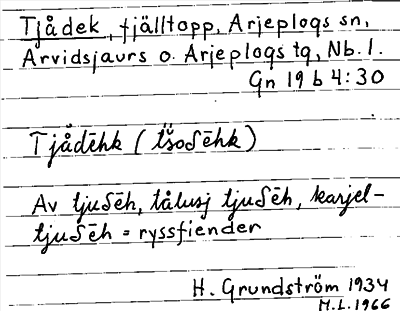 Tjådek, fjälltopp, Arjeplogs sn,
Arvidsjaurs o. Arjeplogs tg, Nb. l.
Gn 19 b 4:30
Tjådēhk (tšoδēhk)
Av tjuδēh, tålusj tjuδēh, karjel-
tjuδēh = ryssfiender
H. Grundström 1934
M.L. 1966